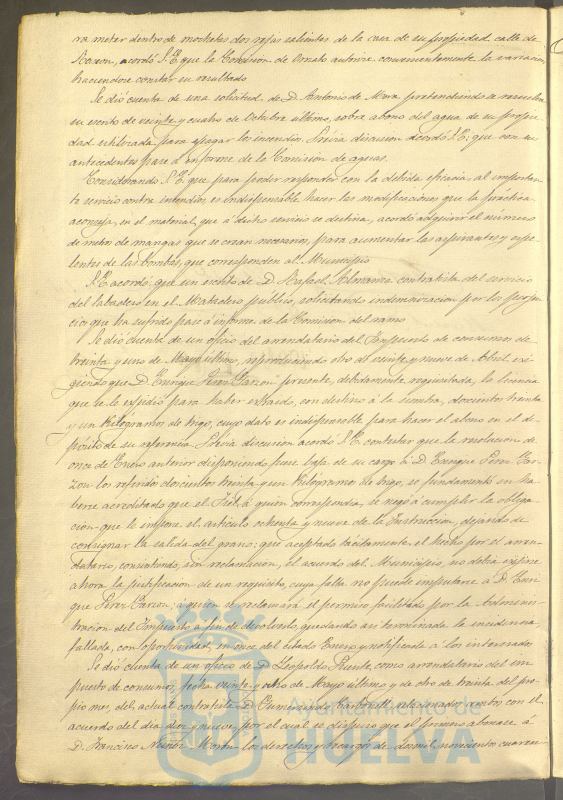 ra meter dentro de mochetas dos rejas salientes de la casa de su propiedad calle de
Rascon, acordó S.E. que la Comision de Ornato autorice convenientemente la variacion
haciendose constar su resultado
Se dió cuenta de una solicitud de D. Antonio de Mora pretendiendo se resuelva
su escrito de veinte y cuatro de Octubre último, sobre abono del agua de su propie-
dad utilizada para apagar los incendios. Prévia discusion acordó S.E. que con sus
antecedentes pase á informe de la Comision de aguas.
Considerando S.E. que para poder responder con la debida eficacia al importan-
te servicio contra incendios es indispensable hacer las modificaciones que la práctica
aconseja, en el material que á dicho servicio se destina, acordó adquirir el número
de metros de mangas que se crean necesarios, para aumentar las aspirantes y espe-
lentes de las bombas, que corresponden al Municipio
S.E. acordó que un escrito de D. Rafael Almansa contratista del servicio
del lavadero en el Matadero publico, solicitando indemnizacion por los perjui-
cios que ha sufrido pase á informe de la Comision del ramo
Se dió cuenta de un oficio del arrendatario del Impuesto de consumos de
treinta y uno de Mayo último, reproduciendo otro de veinte y nueve de Abril exi-
giendo que D. Enrique Perez Garzon presente, debidamente requisitada, la licencia
que se le expidió para haber extraido, con destino á la siembra, doscientos treinta
y un Kilógramos de trigo, cuyo dato es indispensable para hacer el abono en el de-
pósito de su referencia. Prévia discusion acordó S.E. contestar que la resolucion de
once de Enero anterior disponiendo fuese baja de su cargo á D. Enrique Perez Gar-
zon los referidos doscientos treinta y un Kilógramos de trigo, se fundamentó en ha-
berse acreditado que el Fiel, á quien correspondia, se negó á cumplir la obliga-
cion que le impone el artículo ochenta y nueve de la Instruccion, dejando de
consignar la salida del grano; que aceptado tácitamente el hecho por el arren-
datario, consintiendo, sin reclamacion, el acuerdo del Municipio, no debia exigirse
ahora la justificacion de un requisito, cuya falta no puede imputarse á D. Enri-
que Perez Garzon, á quien se reclamará el permiso facilitado por la Adminis-
tracion del Impuesto á fin de devolverlo, quedando así terminada la incidencia
fallada, con oportunidad, en once del citado Enero y notificada á los interesados
Se dió cuenta de un oficio de D. Leopoldo Puente, como arrendatario del im-
puesto de consumos, fecha veinte y ocho de Mayo último y de otro de treinta del pro-
pio mes, del actual contratista D. Gumersindo Carbonell relacionados ambos con el
acuerdo del dia diez y nueve, por el cual se dispuso que el primero abonase á
D. Francisco Nuñez Moran los derechos y recargos de dos mil novecientos cuaren
HUELVA